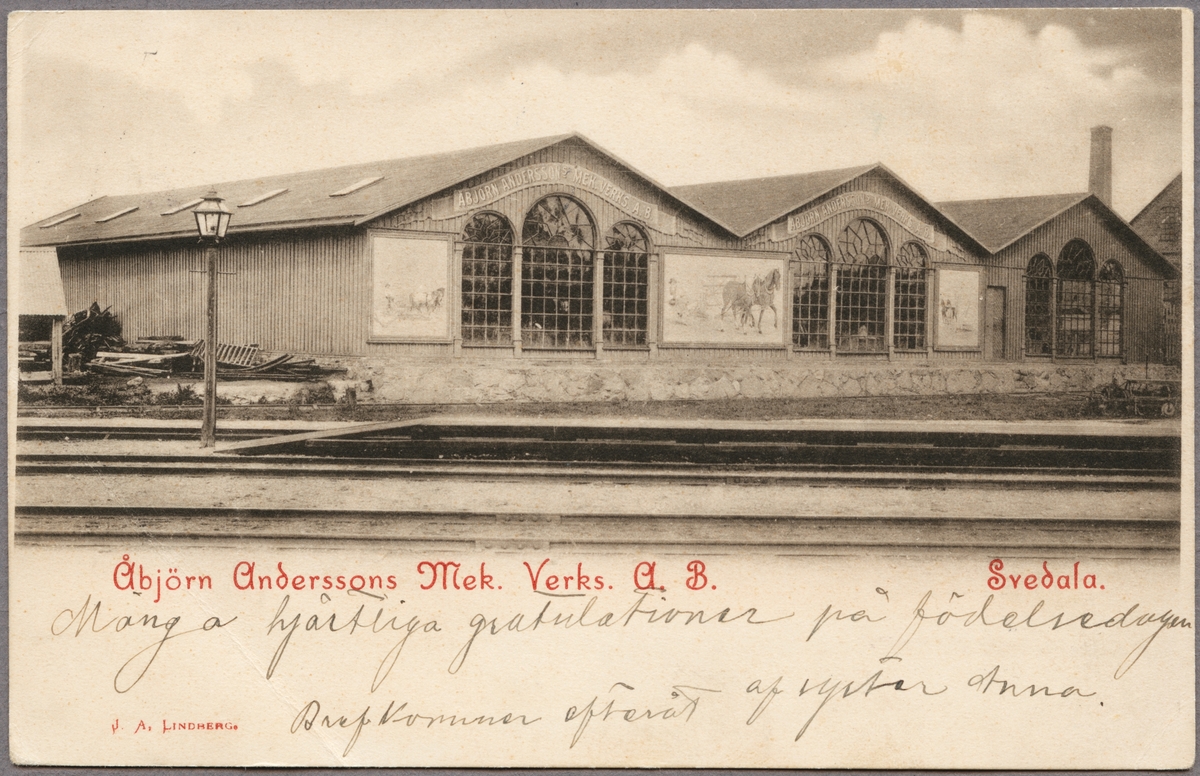 ÅBJÖRN ANDERSSONS MEK. VERKS. A. B.
ÅBJÖRN ANDERSSONS MEK. VERKS. A. B.
Åbjörn Anderssons Mek. Verks. A. B. Svedala.
Många hjärtliga gratulationer på födelsedagen
af syster Anna.
Bref kommer efteråt
J. A. LINDBERG.